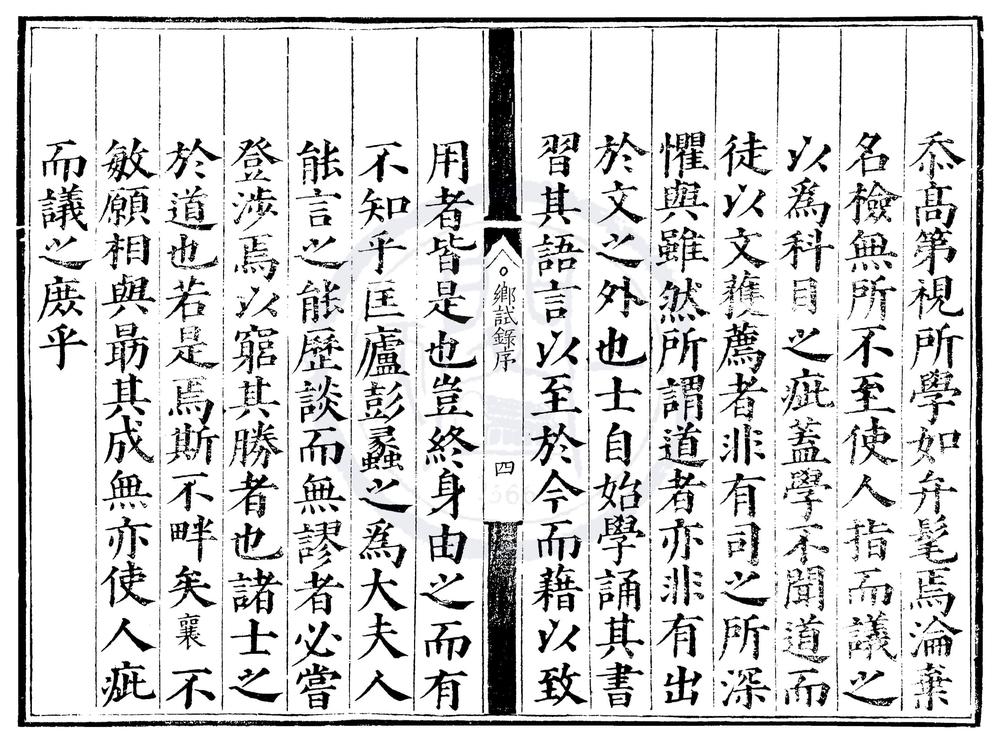 忝高第視所學如弁髦焉淪棄
名檢無所不至使人指而議之
以爲科目之疵蓋學不聞道而
徒以文蓺薦者非有司之所深
懼與雖然所謂道者亦非有出
於文之外也士自始學誦其書
習其語言以至於今而藉以致
鄉試錄序
四
用者皆是也豈終身由之而有
不知乎匡廬彭蠡之爲大夫人
能言之能歷談而無謬者必嘗
登涉焉以窮其勝者也諸士之
於道也若是焉斯不畔矣襄不
敏願相與勗其成無亦使人疵
而議之庻乎